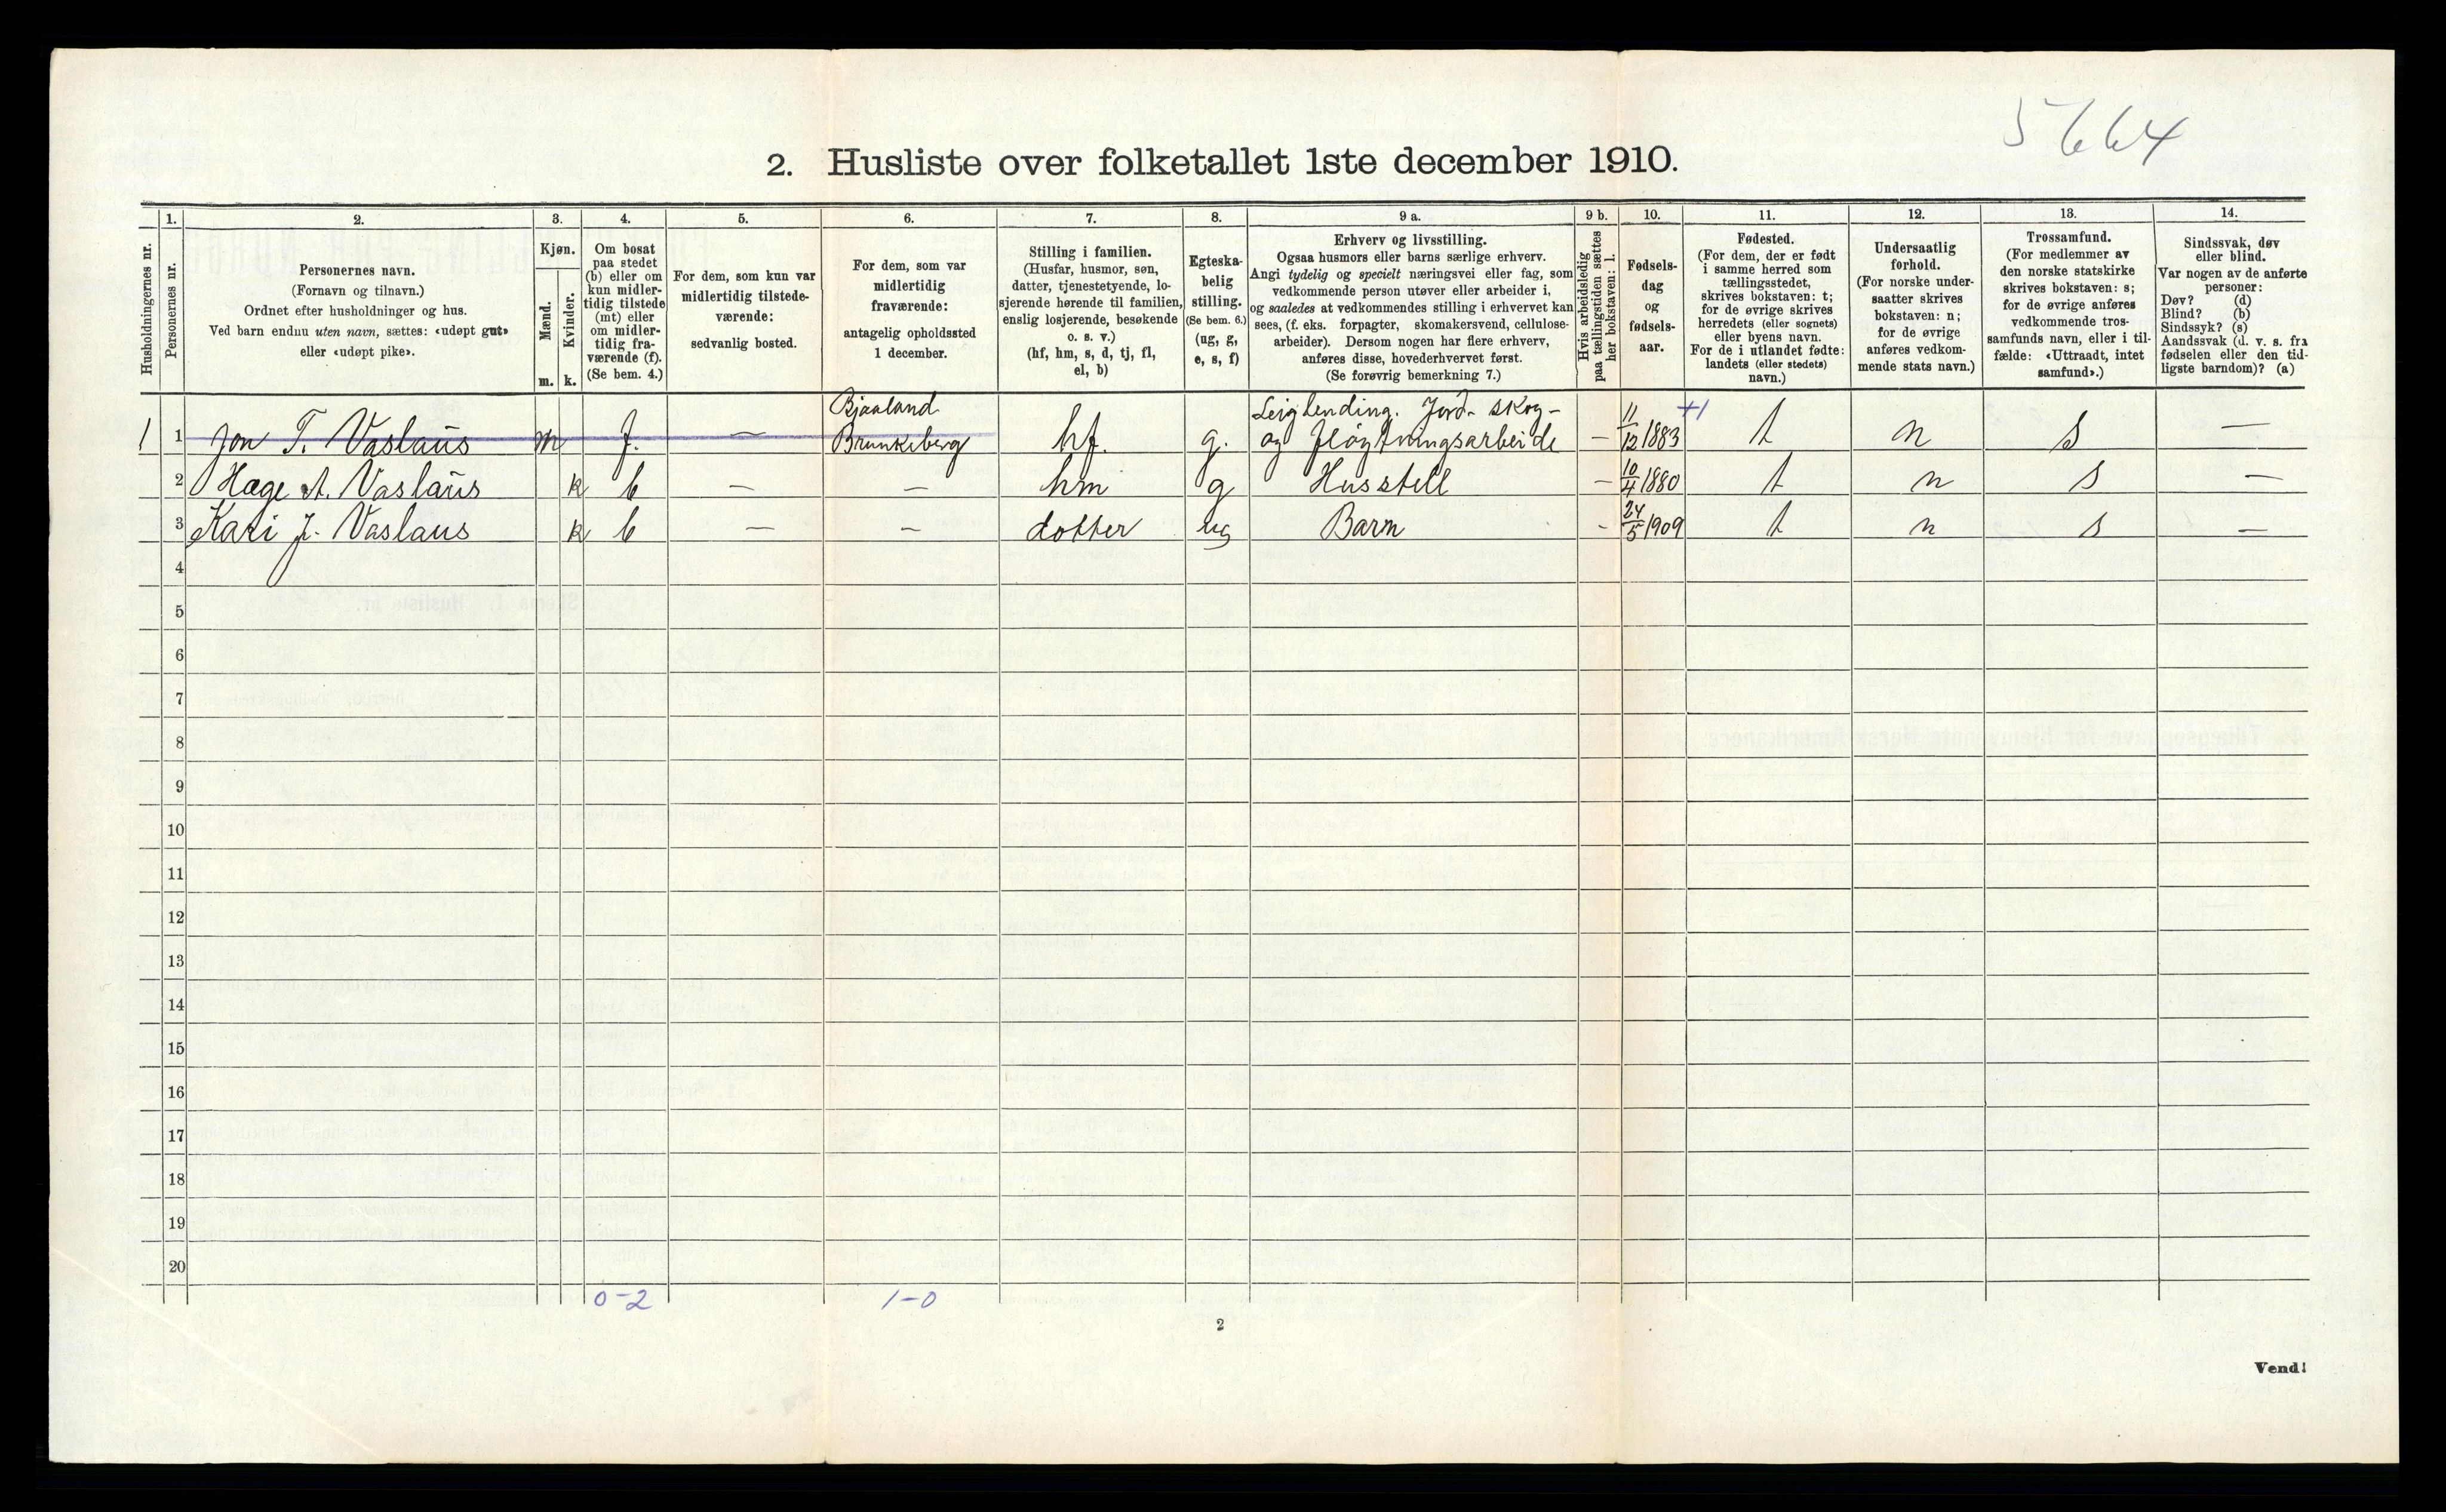 5664
2. Husliste over folketallet 1ste december 1910.
Husholdningernes nr.
1.
Personernes nr.
2.
Personernes navn.
(Fornavn og tilnavn.)
Ordnet efter husholdninger og hus.
Ved barn endnu uten navn, sættes: «udøpt gut»
eller «udøpt pike».
3.
Kjøn.
Mænd.
Kvinder.
m. k.
4.
Om bosat
paa stedet
(b) eller om
kun midler-
tidig tilstede
(mt) eller
om midler-
tidig fra-
værende (f).
(Se bem. 4.)
5.
For dem, som kun var
midlertidig tilstede-
værende:
sedvanlig bosted.
6.
For dem, som var
midlertidig
fraværende:
antagelig opholdssted
1 december.
7.
Stilling i familien.
(Husfar, husmor, søn,
datter, tjenestetyende, lo-
sjerende hørende til familien,
enslig losjerende, besøkende
o. s. v.)
(hf, hm, s, d, tj, fl,
el, b)
8.
Egteska-
belig
stilling.
(Se bem. 6.)
(ug, g,
e, s, f)
9 a.
Erhverv og livsstilling.
Ogsaa husmors eller barns særlige erhverv.
Angi tydelig og specielt næringsvei eller fag, som
vedkommende person utøver eller arbeider i,
og saaledes at vedkommendes stilling i erhvervet kan
sees, (f. eks. forpagter, skomakersvend, cellulose-
arbeider). Dersom nogen har flere erhverv,
anføres disse, hovederhvervet først.
(Se forøvrig bemerkning 7.)
9 b.
Hvis arbeidsledig
paa tællingstiden sættes
her bokstaven: l.
10.
Fødsels-
dag
og
fødsels-
aar.
11.
Fødested.
(For dem, der er født
i samme herred som
tællingsstedet,
skrives bokstaven: t;
for de øvrige skrives
herredets (eller sognets)
eller byens navn.
For de i utlandet fødte:
landets (eller stedets)
navn.)
12.
Undersaatlig
forhold.
(For norske under-
saatter skrives
bokstaven: n;
for de øvrige
anføres vedkom-
mende stats navn.)
13.
Trossamfund.
(For medlemmer av
den norske statskirke
skrives bokstaven: s;
for de øvrige anføres
vedkommende tros-
samfunds navn, eller i til-
fælde: «Uttraadt, intet
samfund».)
14.
Sindssvak, døv
eller blind.
Var nogen av de anførte
personer:
Døv? (d)
Blind? (b)
Sindssyk? (s)
Aandssvak (d. v. s. fra
fødselen eller den tid-
ligste barndom)? (a)
Bjaaland Leiglending. Jord- skog- +1
1 1 Jon T. Vaslaūs m f. — Brunkeberg hf. g. og fløytningsarbeide – 11/12 1883 t n s —
2 Hæge A. Vaslaūs k b — — hm g Husstell – 10/4 1880 t n s —
3 Kari J. Vaslaus k b — — dotter ug Barn - 24/5 1909 t n s —
4
5
6
7
8
9
10
11
12
13
14
15
16
17
18
19
20
0-2 1-0
2
Vend!